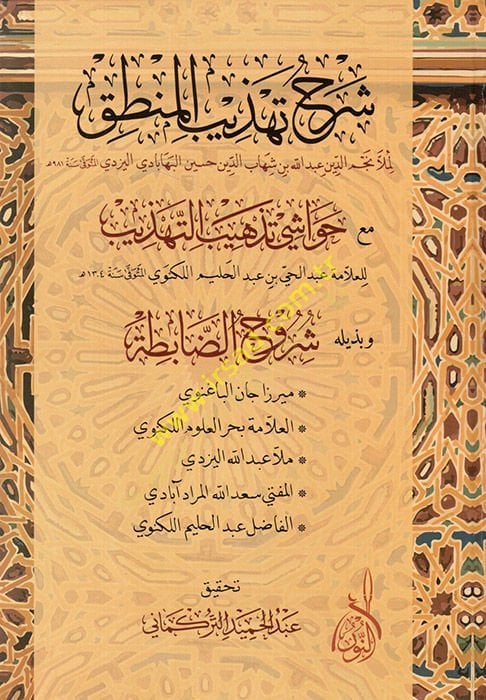 شرح تهذيب المنطق
لملا نجم الدين عبد الله بن شهاب الدين حسين البهابادي اليزدي المتوفى سنة ٩٨١هـ
مع حواشي تذهيب التهذيب
للعلامة عبد الحي بن عبد الحليم اللكنوي المتوفى سنة ١٣٠٤هـ
وبذيله شروح الضابطة
* ميرزا جان الباغنوي
* العلامة بحر العلوم اللكنوي
* ملا عبد الله اليزدي
* المفتي سعد الله المرادآبادي
* الفاضل عبد الحليم اللكنوي
تحقيق
عبد الحميد التركماني
النور